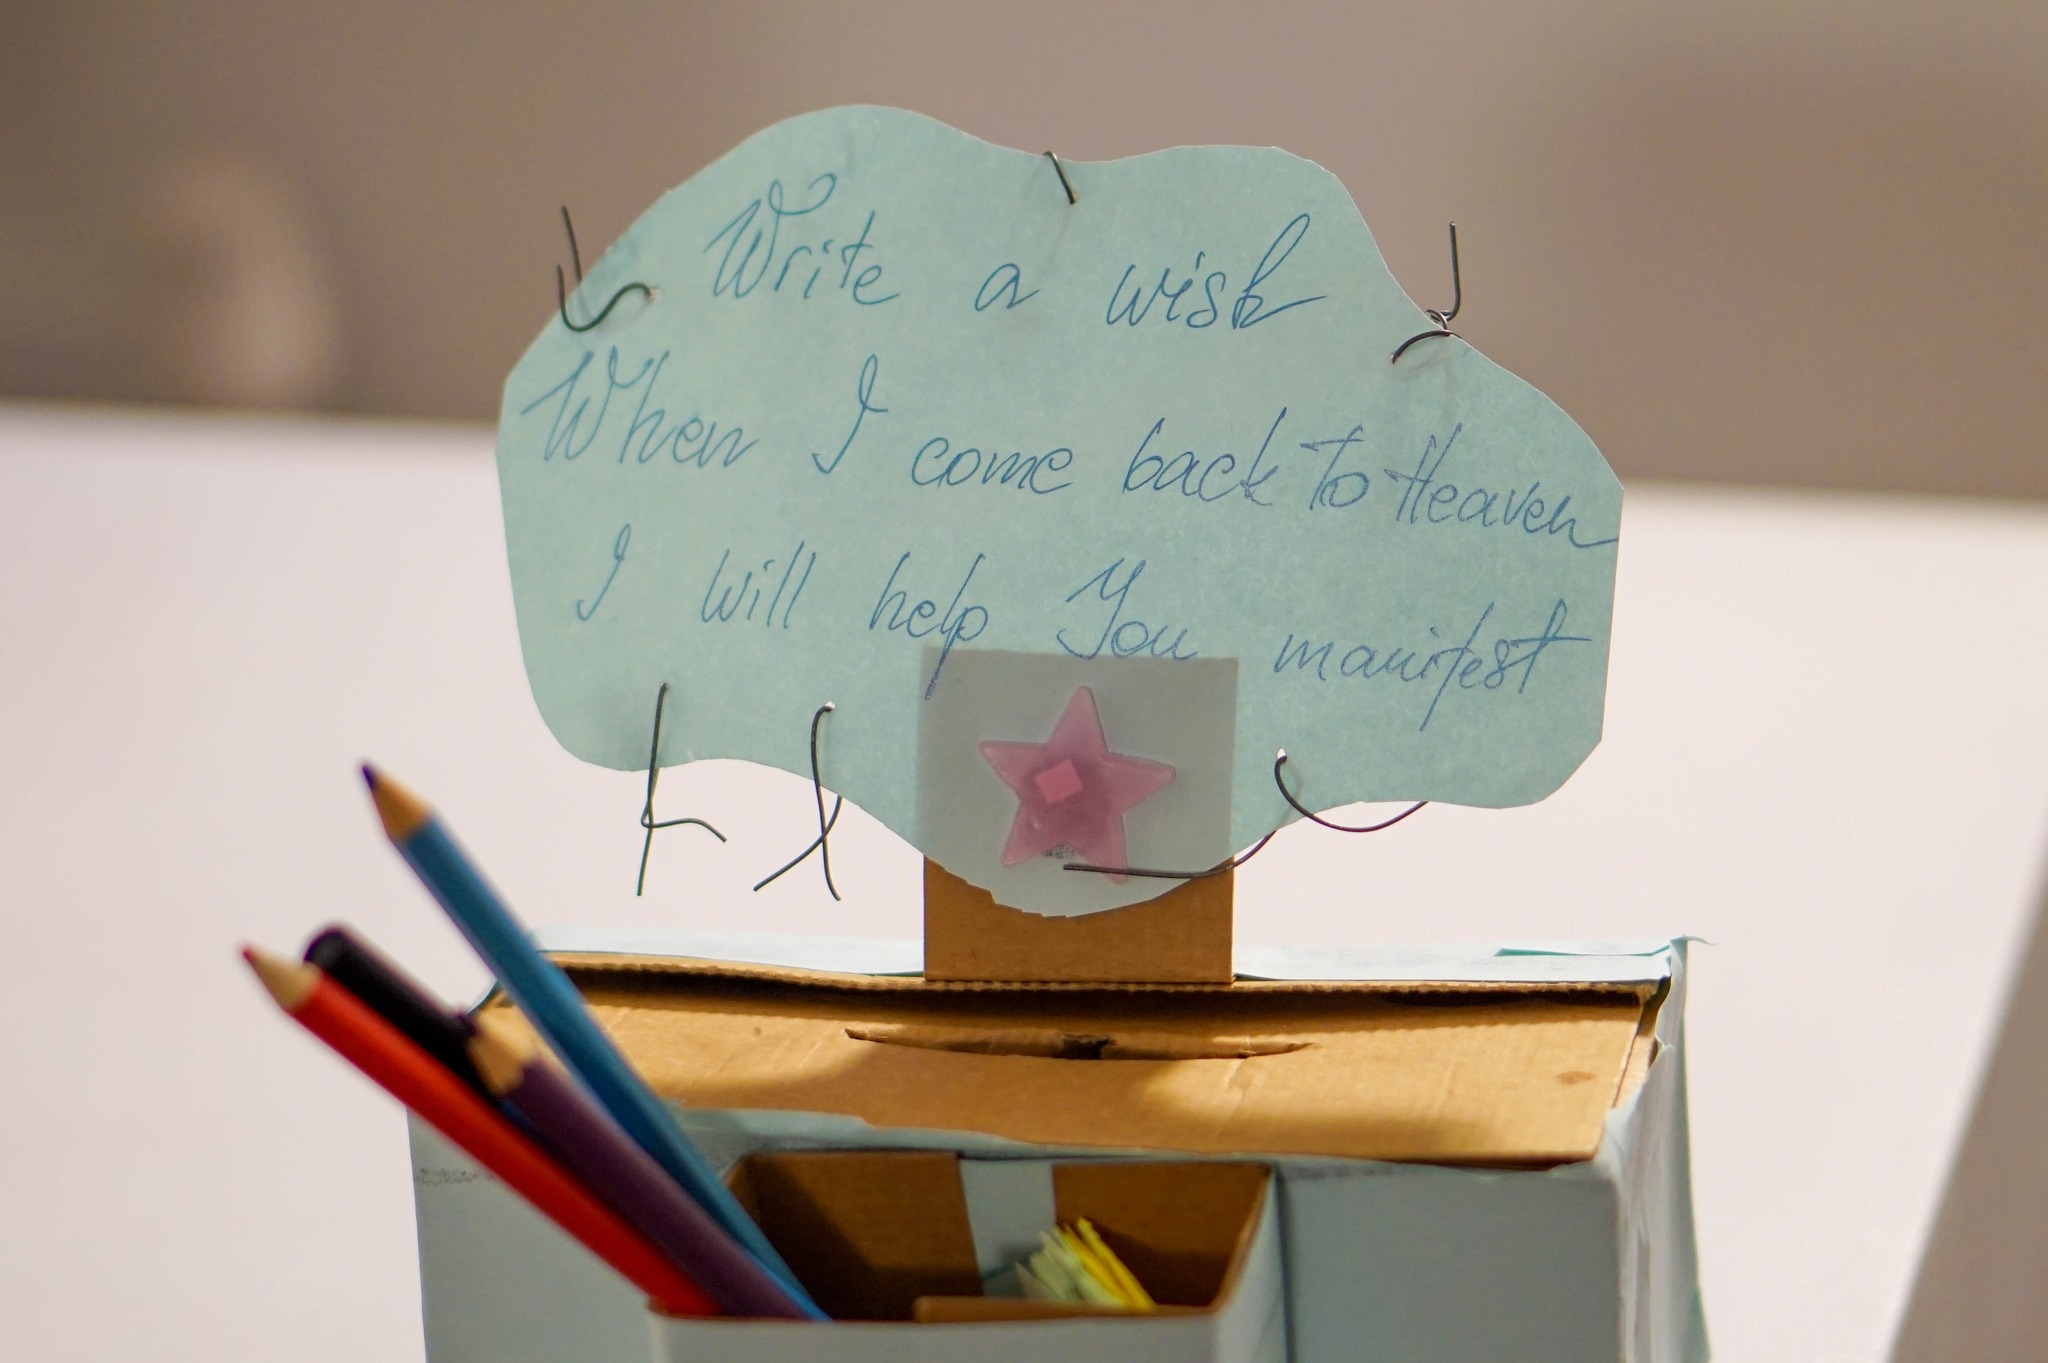 Write a wish
When I come back To Heaven
I will help You manifest